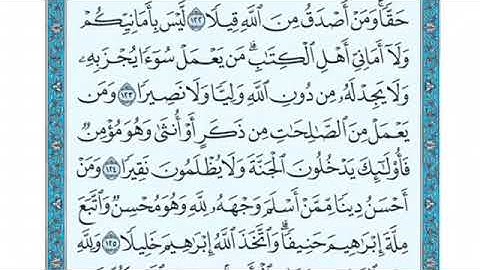 حَقًّاۚ وَمَنْ أَصْدَقُ مِنَ ٱللَّهِ قِيلًا ١٢٢ لَّيْسَ بِأَمَانِيِّكُمْ
وَلَآ أَمَانِيِّ أَهْلِ ٱلْكِتَٰبِۗ مَن يَعْمَلْ سُوٓءًا يُجْزَ بِهِۦ
وَلَا يَجِدْ لَهُۥ مِن دُونِ ٱللَّهِ وَلِيًّا وَلَا نَصِيرًا ١٢٣ وَمَن
يَعْمَلْ مِنَ ٱلصَّٰلِحَٰتِ مِن ذَكَرٍ أَوْ أُنثَىٰ وَهُوَ مُؤْمِنٌ
فَأُو۟لَٰٓئِكَ يَدْخُلُونَ ٱلْجَنَّةَ وَلَا يُظْلَمُونَ نَقِيرًا ١٢٤ وَمَنْ
أَحْسَنُ دِينًا مِّمَّنْ أَسْلَمَ وَجْهَهُۥ لِلَّهِ وَهُوَ مُحْسِنٌ وَٱتَّبَعَ
مِلَّةَ إِبْرَٰهِيمَ حَنِيفًاۗ وَٱتَّخَذَ ٱللَّهُ إِبْرَٰهِيمَ خَلِيلًا ١٢٥ وَلِلَّهِ